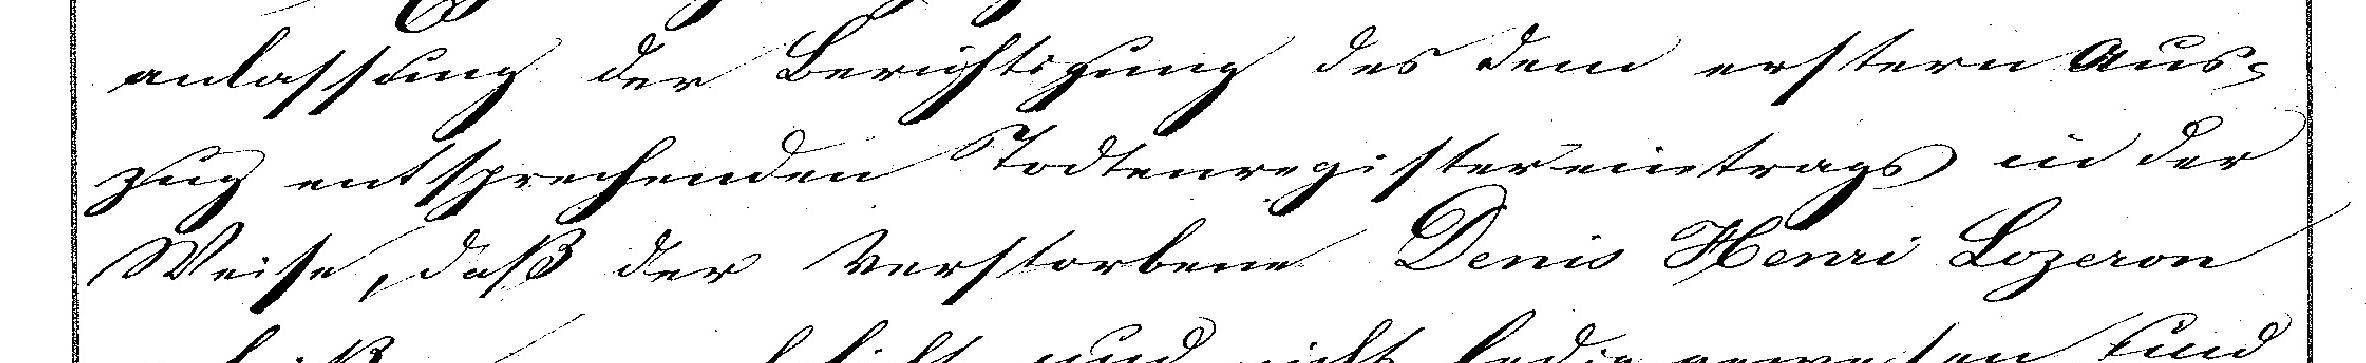 anlassung der Berichtigung des dem erstern Aus-
zug entsprechenden Todtenregistereintrags in der
Weise, daß der verstorbene Denis Henri Lozeron
und nicht ledig gewesen und